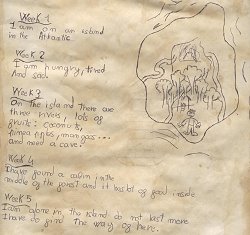 Week 1
I am on an island
in the Atlantic
Week 2
I am hungry, tired
And sad.
Week 3
On the island there are
three rivers, lots of
fruit: coconuts,
mangas...
and need a cave.
Week 4
I have found a cabin in the
middle of the forest and it has lot of good inside.
Week 5
I am alone in the island do not last more
I have to find the way of here.